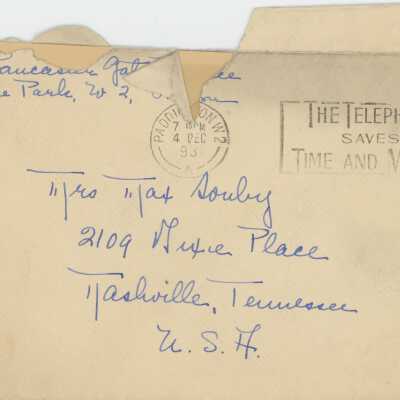 Lancaster Gate
Park, W 2,
PADDINGTON. W2
7 PM
4 DEC
193
THE TELEPH
SAVES
TIME AND W
Mrs Max Souby
2109 Dixie Place
Nashville, Tennessee
U. S. A.